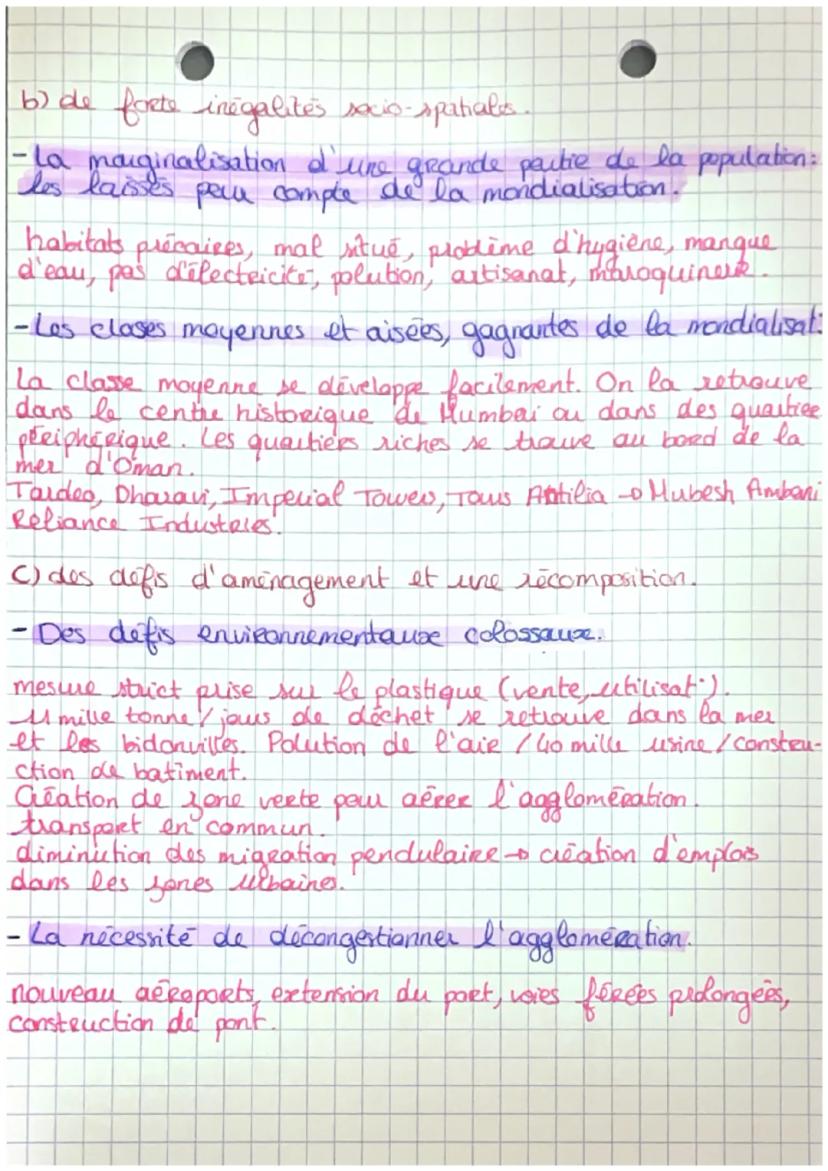 b) de forte inégalités socio-spatiales.
- La marginalisation d'une grande partie de la population:
les laissés peur compte de la mondialisation.
habitats précaires, mal situé, problème d'hygiène, manque
d'eau, pas d'électricité, polution, artisanat, maroquinerie.
- Les clases moyennes et aisées, gagnantes de la mondialisat°
La classe moyenne se développe facilement. On la retrouve
dans le centre historique de Mumbai ou dans des quartiee
périphérique. Les quartiers riches se trouve au bord de la
mer d'Oman.
Tardeo, Dharavi, Imperial Towers, Tours Antilia → Mubesh Ambani
Reliance Industries.
C) des défis d'aménagement et une récomposition.
- Des défis environnementaux colossaux.
mesure strict prise sur le plastique (vente, utilisat°).
11 mille tonne / jours de déchet se retrouve dans la mer
et les bidonvilles. Polution de l'air / 40 mille usine / constru-
ction de batiment.
Création de zone verte pour aérer l'agglomération.
transport en commun.
diminution des migration pendulaire → création d'emplois
dans les zones urbaines.
- La nécessité de décongestionner l'agglomération.
nouveau aéroports, extension du port, voies férées prolongées,
construction de pont.